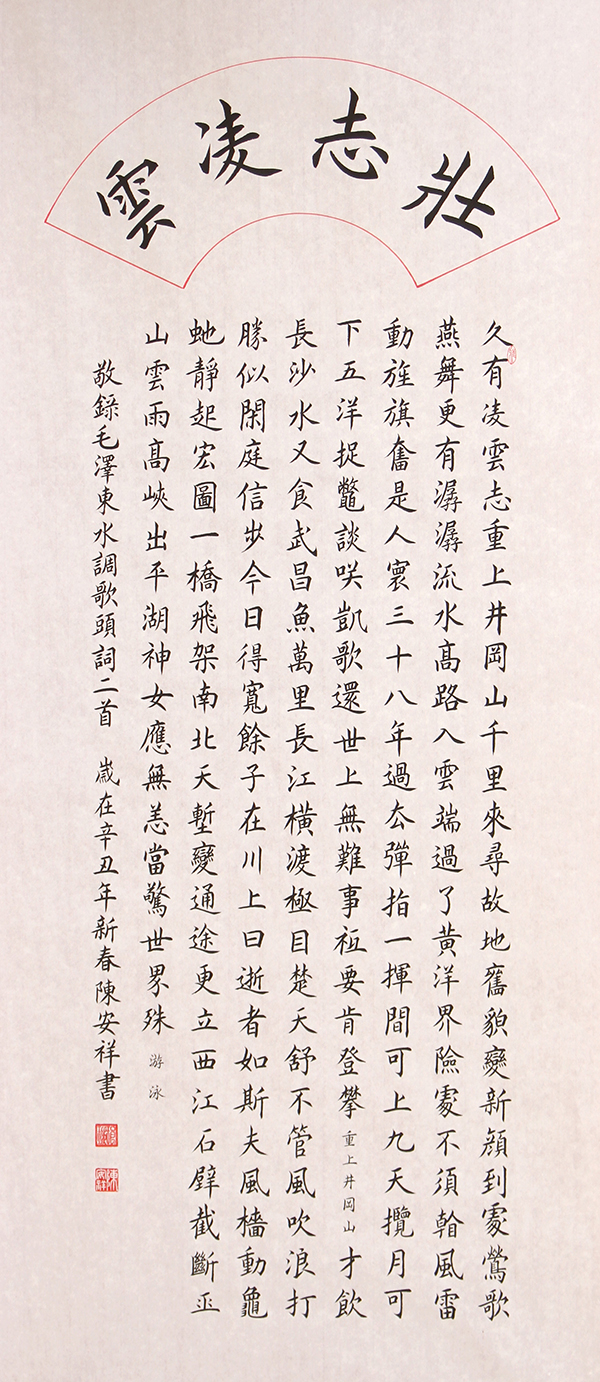 壯志凌雲
久有凌雲志重上井岡山千里來尋故地舊貌變新顔到處鶯歌
燕舞更有潺潺流水髙路入雲端過了黄洋界險處不須看風雷
動旌旗奮是人寰三十八年過去彈指一揮間可上九天攬月可
下五洋捉鼈談咲凱歌還世上無難事祗要肯登攀 重上井岡山 才飲
長沙水又食武昌魚萬里長江橫渡極目楚天舒不管風吹浪打
勝似閑庭信步今日得寬餘子在川上曰逝者如斯夫風檣動龜
虵靜起宏圖一橋飛架南北天塹變通途更立西江石壁截斷巫
山雲雨髙峽出平湖神女應無恙當驚世界殊 游泳
敬錄毛澤東水調歌頭詞二首 歲在辛丑年新春陳安祥書